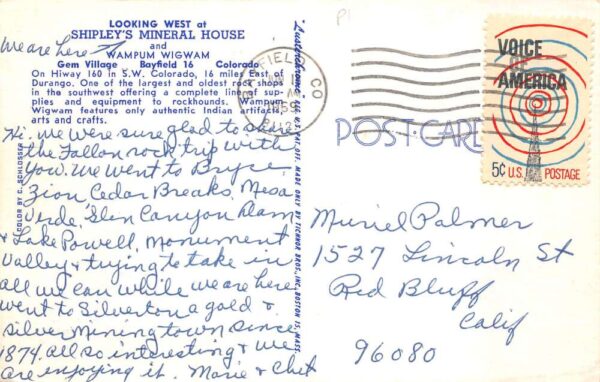 LOOKING WEST at
SHIPLEY'S MINERAL HOUSE
and
WAMPUM WIGWAM
Gem Village Bayfield 16 Colorado
On Hiway 160 in S.W. Colorado, 16 miles East of
Durango. One of the largest and oldest rock shops
in the southwest offering a complete line of sup-
plies and equipment to rockhounds. Wampum
Wigwam features only authentic Indian artifacts,
arts and crafts.
We are here
Hi. we were sure glad to share
the Fallon rock trip with
you. We went to Bryce,
Zion, Cedar Breaks, Mesa
Verde, Glen Canyon Dam
& Lake Powell, Monument
Valley & trying to take in
all we can while we are here
went to Silverton a gold &
silver mining town since
1874. all so interesting & we
are enjoying it. Marie & Chet
COLOR BY C. SCHLOSSER
MADE ONLY BY TICHNOR BROS., INC., BOSTON 15, MASS.
BAYFIELD CO
P1
POST CARD
VOICE
OF
AMERICA
5¢ U.S. POSTAGE
Muriel Palmer
1527 Lincoln St
Red Bluff
Calif
96080